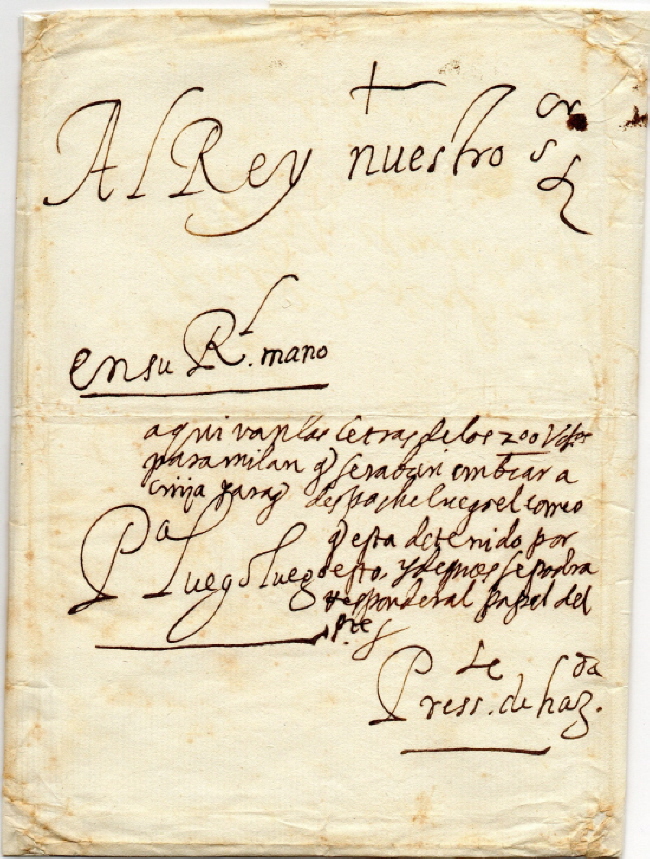 +
Al Rey nuestro s.or
en su R.l mano
aqui van las letras de los 200 V d.os
para milan q̃ seran embiar a
para q̃ despache luego el correo
q̃ esta detenido por
esto, y despues se podra
responder al papel del
P.te
P.a luego luego
El Press.te de haz.da